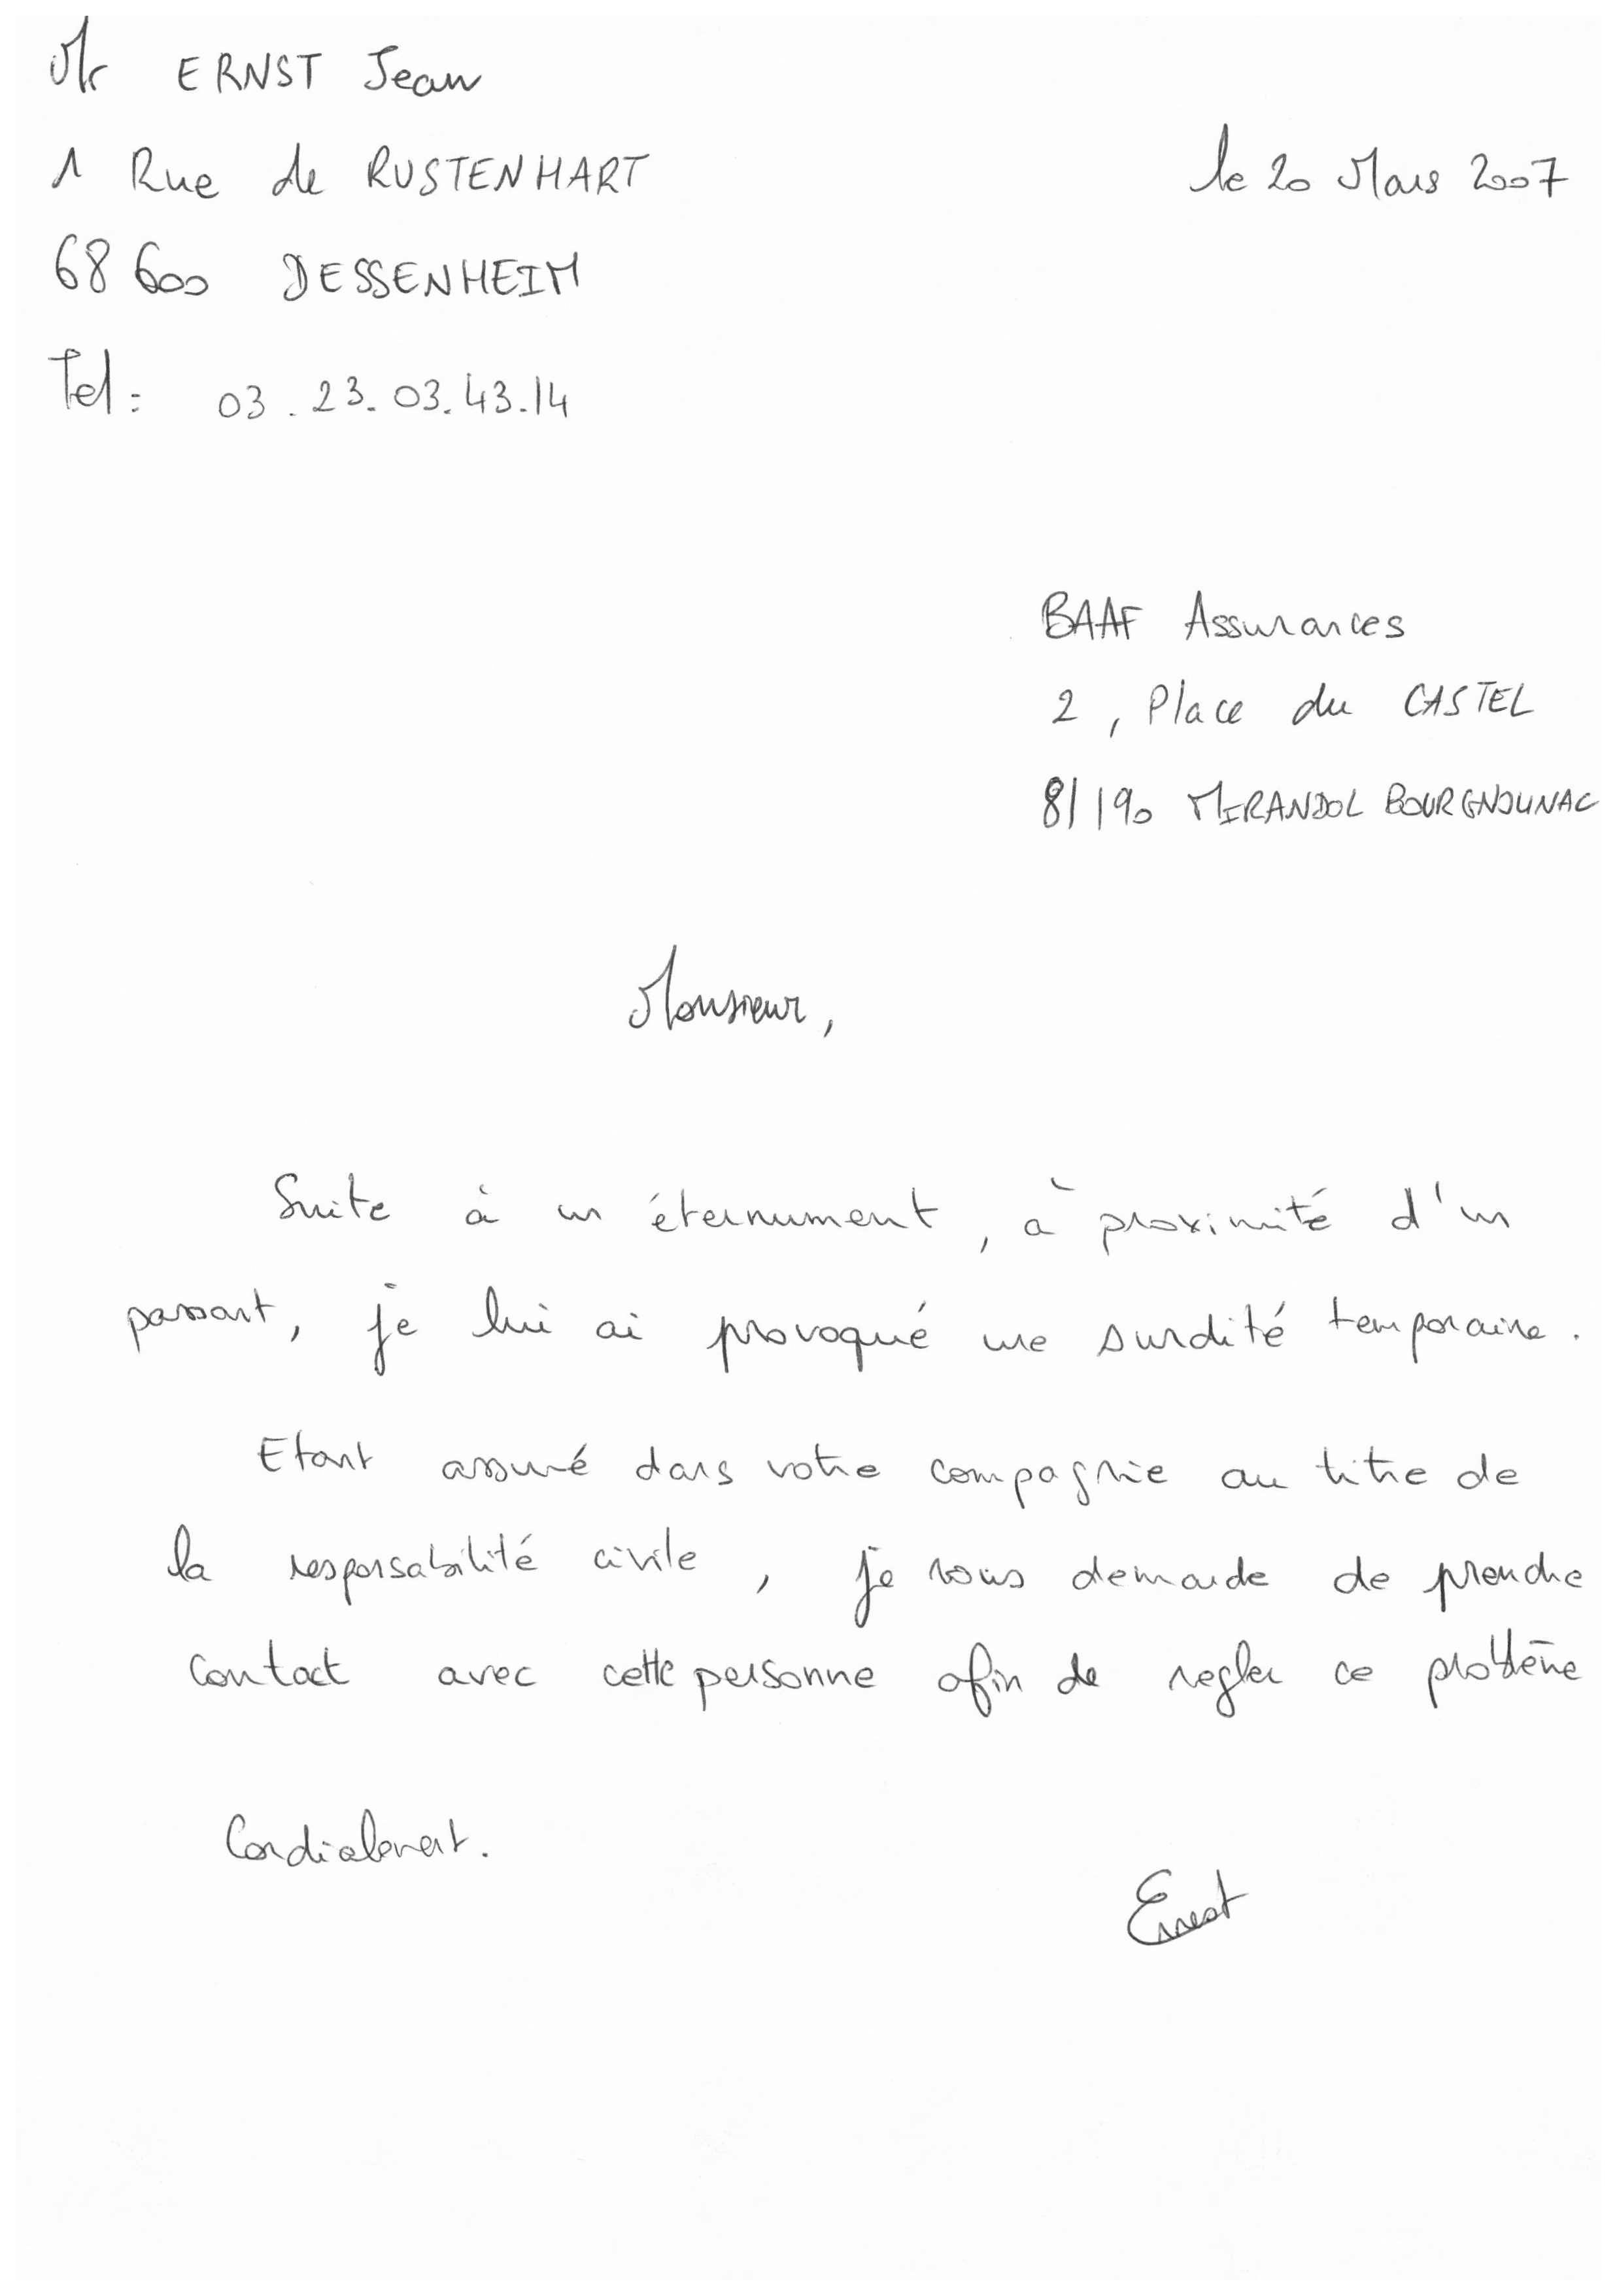 Mr ERNST Jean
1 Rue de RUSTENHART
le 20 Mars 2007
68600 DESSENHEIM
Tel: 03.23.03.43.14
BAAF Assurances
2, Place du CASTEL
81190 MIRANDOL BOURGNOUNAC
Monsieur,
Suite à un éternument, à proximité d'un
passant, je lui ai provoqué une surdité temporaire.
Etant assuré dans votre compagnie au titre de
la responsabilité civile, je vous demande de prendre
contact avec cette personne afin de regler ce problème
Cordialement.
Ernst